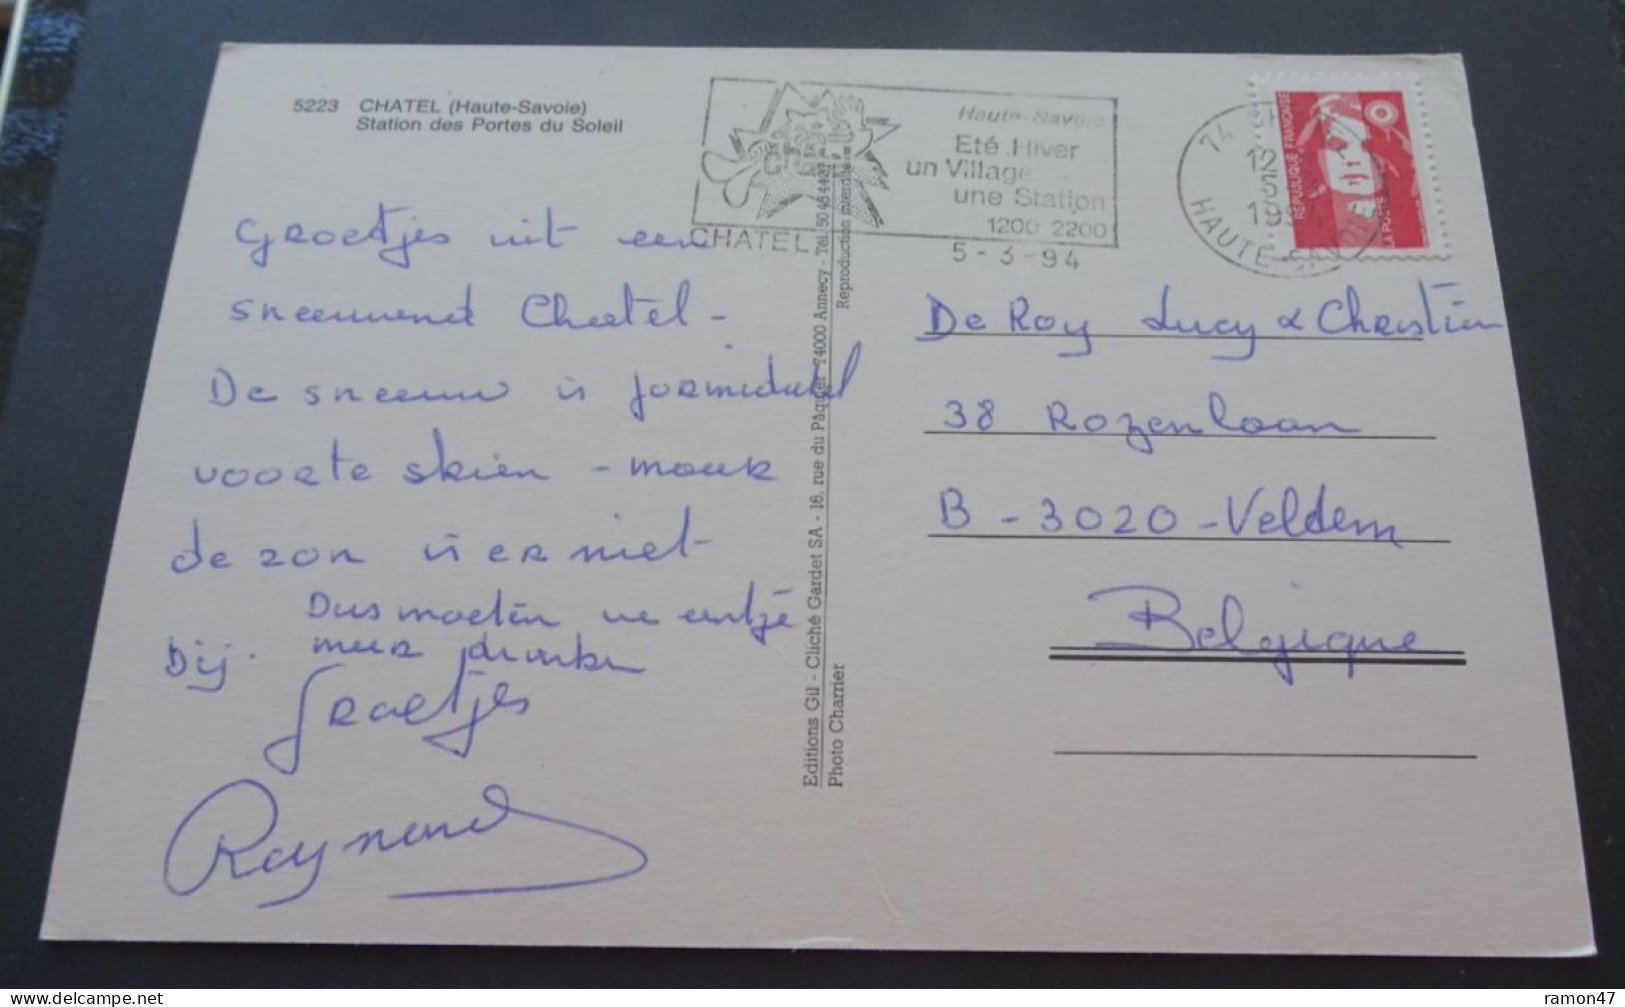 5223 CHATEL (Haute-Savoie)
Station des Portes du Soleil
Haute-Savoie
Eté Hiver
un Village
une Station
1200 2200
CHATEL
5-3-94
74
12 H
1994
HAUTE-SAVOIE
REPUBLIQUE FRANÇAISE
LA POSTE
Groetjes uit een
sneeuwend Chatel -
De sneeuw is formidabel
voor te skiën - maar
de zon is er niet
bij. Dus moeten we eentje
meer drinken
Groetjes
Raymond
Editions Gil - Cliché Gardet SA - 16, rue du Pâquier 74000 Annecy - Tel. 50
Photo Charrier
Reproduction interdite
De Roy Lucy & Christian
38 Rozenlaan
B - 3020 - Veldem
Belgique
ramon47